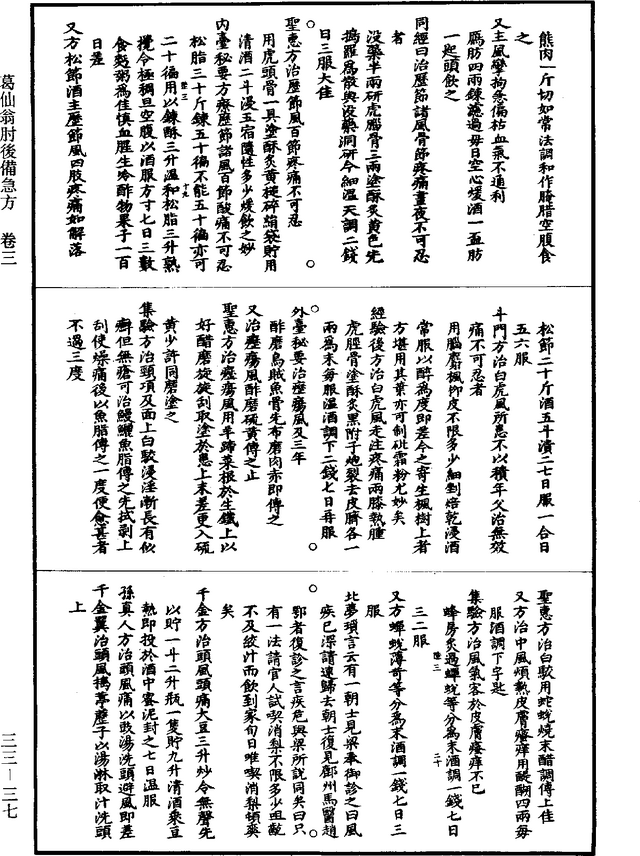 葛仙翁肘後備急方　卷三
三三－三七
熊肉一斤切如常法調和作腌腊空腹食
之
又主風攣拘急偏枯血氣不通利
鴈肪四兩鍊濾過每日空心煖酒一盃肪
一匙頭飲之
同經曰治歷節諸風骨節疼痛晝夜不可忍
者
沒藥半兩研虎腦骨三兩塗酥炙黃色先
擣羅爲散與沒藥同研令細溫天調二錢
日三服大佳
聖惠方治歷節風百節疼痛不可忍
用虎頭骨一具塗酥炙黃槌碎絹袋貯用
清酒二斗浸五宿隨性多少煖飲之妙
內臺秘要方療歷節諸風百節酸痛不可忍
松脂三十斤鍊五十徧不能五十徧亦可
二十徧用以鍊酥三升溫和松脂三升熟
攪令極稠旦空腹以酒服方寸七日三數
食麪粥爲佳慎血腥生冷酢物果子一百
日差
又方松節酒主歷節風四肢疼痛如解落
松節二十斤酒五斗漬二七日服一合日
五六服
斗門方治白虎風所患不以積年久治無效
痛不可忍者
用腦麝楓柳皮不限多少細剉焙乾浸酒
常服以醉爲度即差今之寄生楓樹上者
方堪用其葉亦可制砒霜粉尤妙矣
經驗後方治白虎風走注疼痛兩膝熱腫
虎脛骨塗酥炙黑附子炮裂去皮臍各一
兩爲末每服溫酒調下二錢七日再服
外臺秘要治癧瘍風及三年
酢磨烏賊魚骨先布磨肉赤即傅之
又治癧瘍風酢磨硫黃傅之止
聖惠方治癧瘍風用羊蹄菜根於生鐵上以
好醋磨旋旋刮取塗於患上未差更入硫
黃少許同磨塗之
集驗方治頸項及面上白駮浸淫漸長有似
癬但無瘡可治鰻鱺魚脂傅之先拭剥上
刮使燥痛後以魚脂傅之一度便愈甚者
不過三度
聖惠方治白駮用蛇蛻燒末醋調傅上佳
又方治中風煩熱皮膚瘙痒用醍醐四兩每
服酒調下半匙
集驗方治風氣客於皮膚瘙痒不已
蜂房炙過蟬蛻等分爲末酒調一錢七日
三二服
又方蟬蛻薄荷等分爲末酒調一錢七日三
服
北夢瑣言云有一朝士見梁奉御診之曰風
疾已深請速歸去朝士復見鄜州馬醫趙
鄂者復診之言疾危與梁所說同矣曰只
有一法請官人試喫消梨不限多少咀齕
不及絞汁而飲到家旬日唯喫消梨頓爽
矣
千金方治頭風頭痛大豆三升炒令無聲先
以貯一斗二升瓶一隻貯九升清酒乘豆
熱即投於酒中蜜泥封之七日溫服
孫真人方治頭風痛以豉湯洗頭避風即差
千金翼治頭風擣葶藶子以湯淋取汁洗頭
上